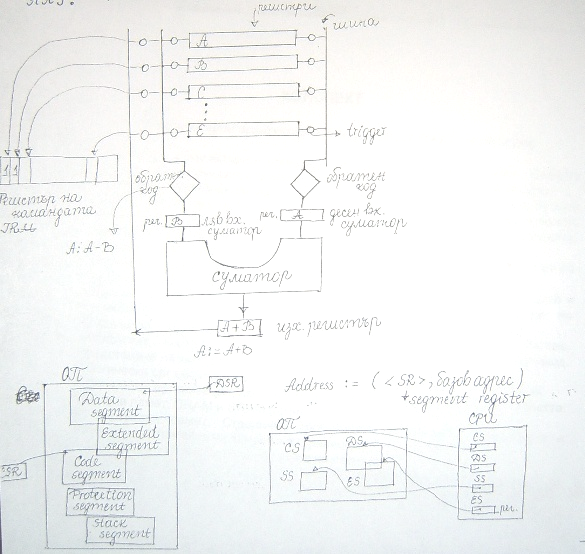 регистри
шина
A
B
C
E
trigger
1 1
обратен
код
обратен
код
Регистър на
командата
IRM
рег. B ляв вх.
суматор
рег. A десен вх.
суматор
A:A-B
суматор
A+B изх. регистър
A:=A+B
ОП
DSR
Data
segment
Extended
segment
SR
Code
segment
Protection
segment
Stack
segment
Address := (<SR>, базов адрес)
segment register
ОП
CS
DS
SS
ES
CPU
CS
DS
SS
ES
рег.